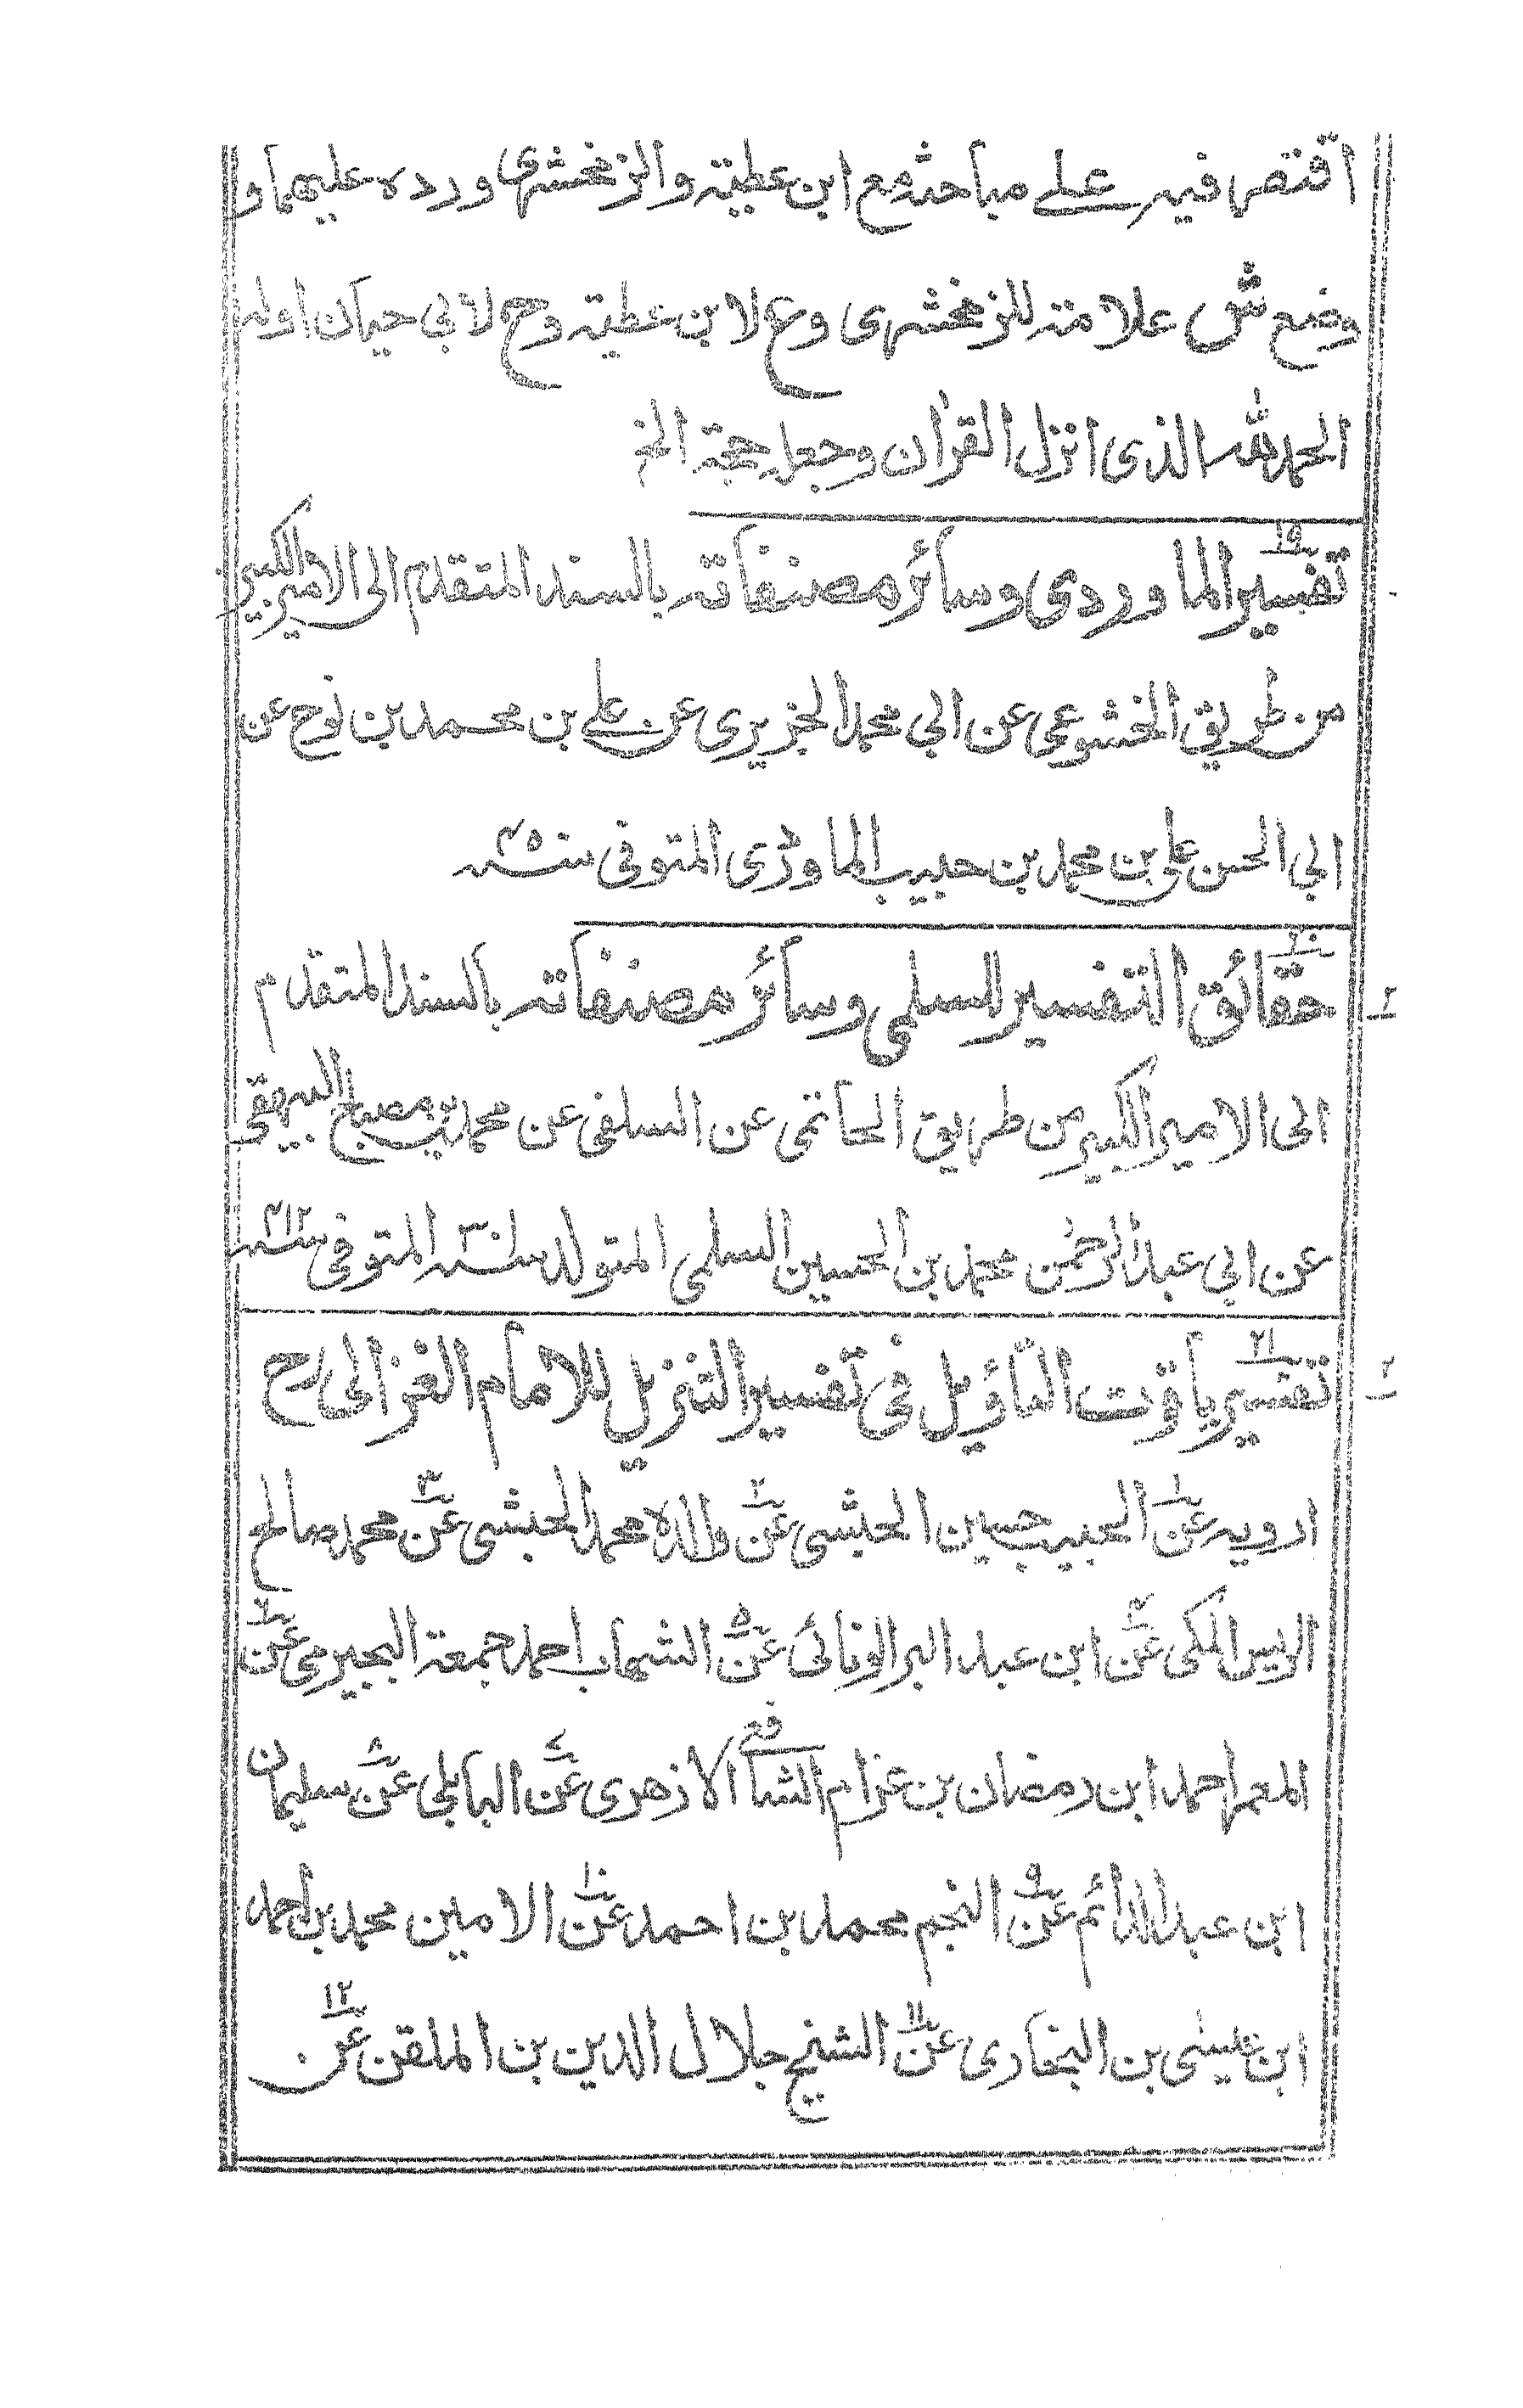 اقتصر فيه على مباحثه مع ابن عطية والزمخشرى ورده عليهما و
وضع ش علامته للزمخشرى وع لابن عطية وح لابي حيان اوله
الحمد لله الذى انزل القرأن وجعله حجة الخ
١٩
تفسير الماوردى وسائر مصنفاته بالسند المتقدم الى الامير الكبير
من طريق الخشوعى عن ابي محمد الجزيرى عن على بن محمد بن نوح عن
ابي الحسن على بن محمد بن حبيب الماوردى المتوفى سنة ٤٥٠
٢٠
حقائق التفسير للسلمى وسائر مصنفاته بالسند المتقدم
الى الامير الكبير من طريق الحاتمى عن السلفى عن محمد بن مصباح البيهقى
عن ابي عبد الرحمٰن محمد بن الحسين السلمى المتولد سنة المتوفى سنة ٤١٢
٢١
تفسير ياقوت التأويل فى تفسير التنزيل للامام الغزالى رح
ارويه عن١ الحبيب حسين الحبشى عن٢ والده محمد الحبشى عن٣ محمد صالح
الريس المكى عن٤ ابن عبد البر الونائى عن٥ الشهاب احمد جمعة البجيرمى عن٦
المعمر احمد ابن رمضان بن عزام الشافعى الازهرى عن٧ البابلى عن٨ سليمان
ابن عبد الدائم عن٩ النجم محمد بن احمد عن١٠ الامين محمد بن احمد
ابن عيسٰى بن البخارى عن١١ الشيخ جلال الدين بن الملقن عن١٢